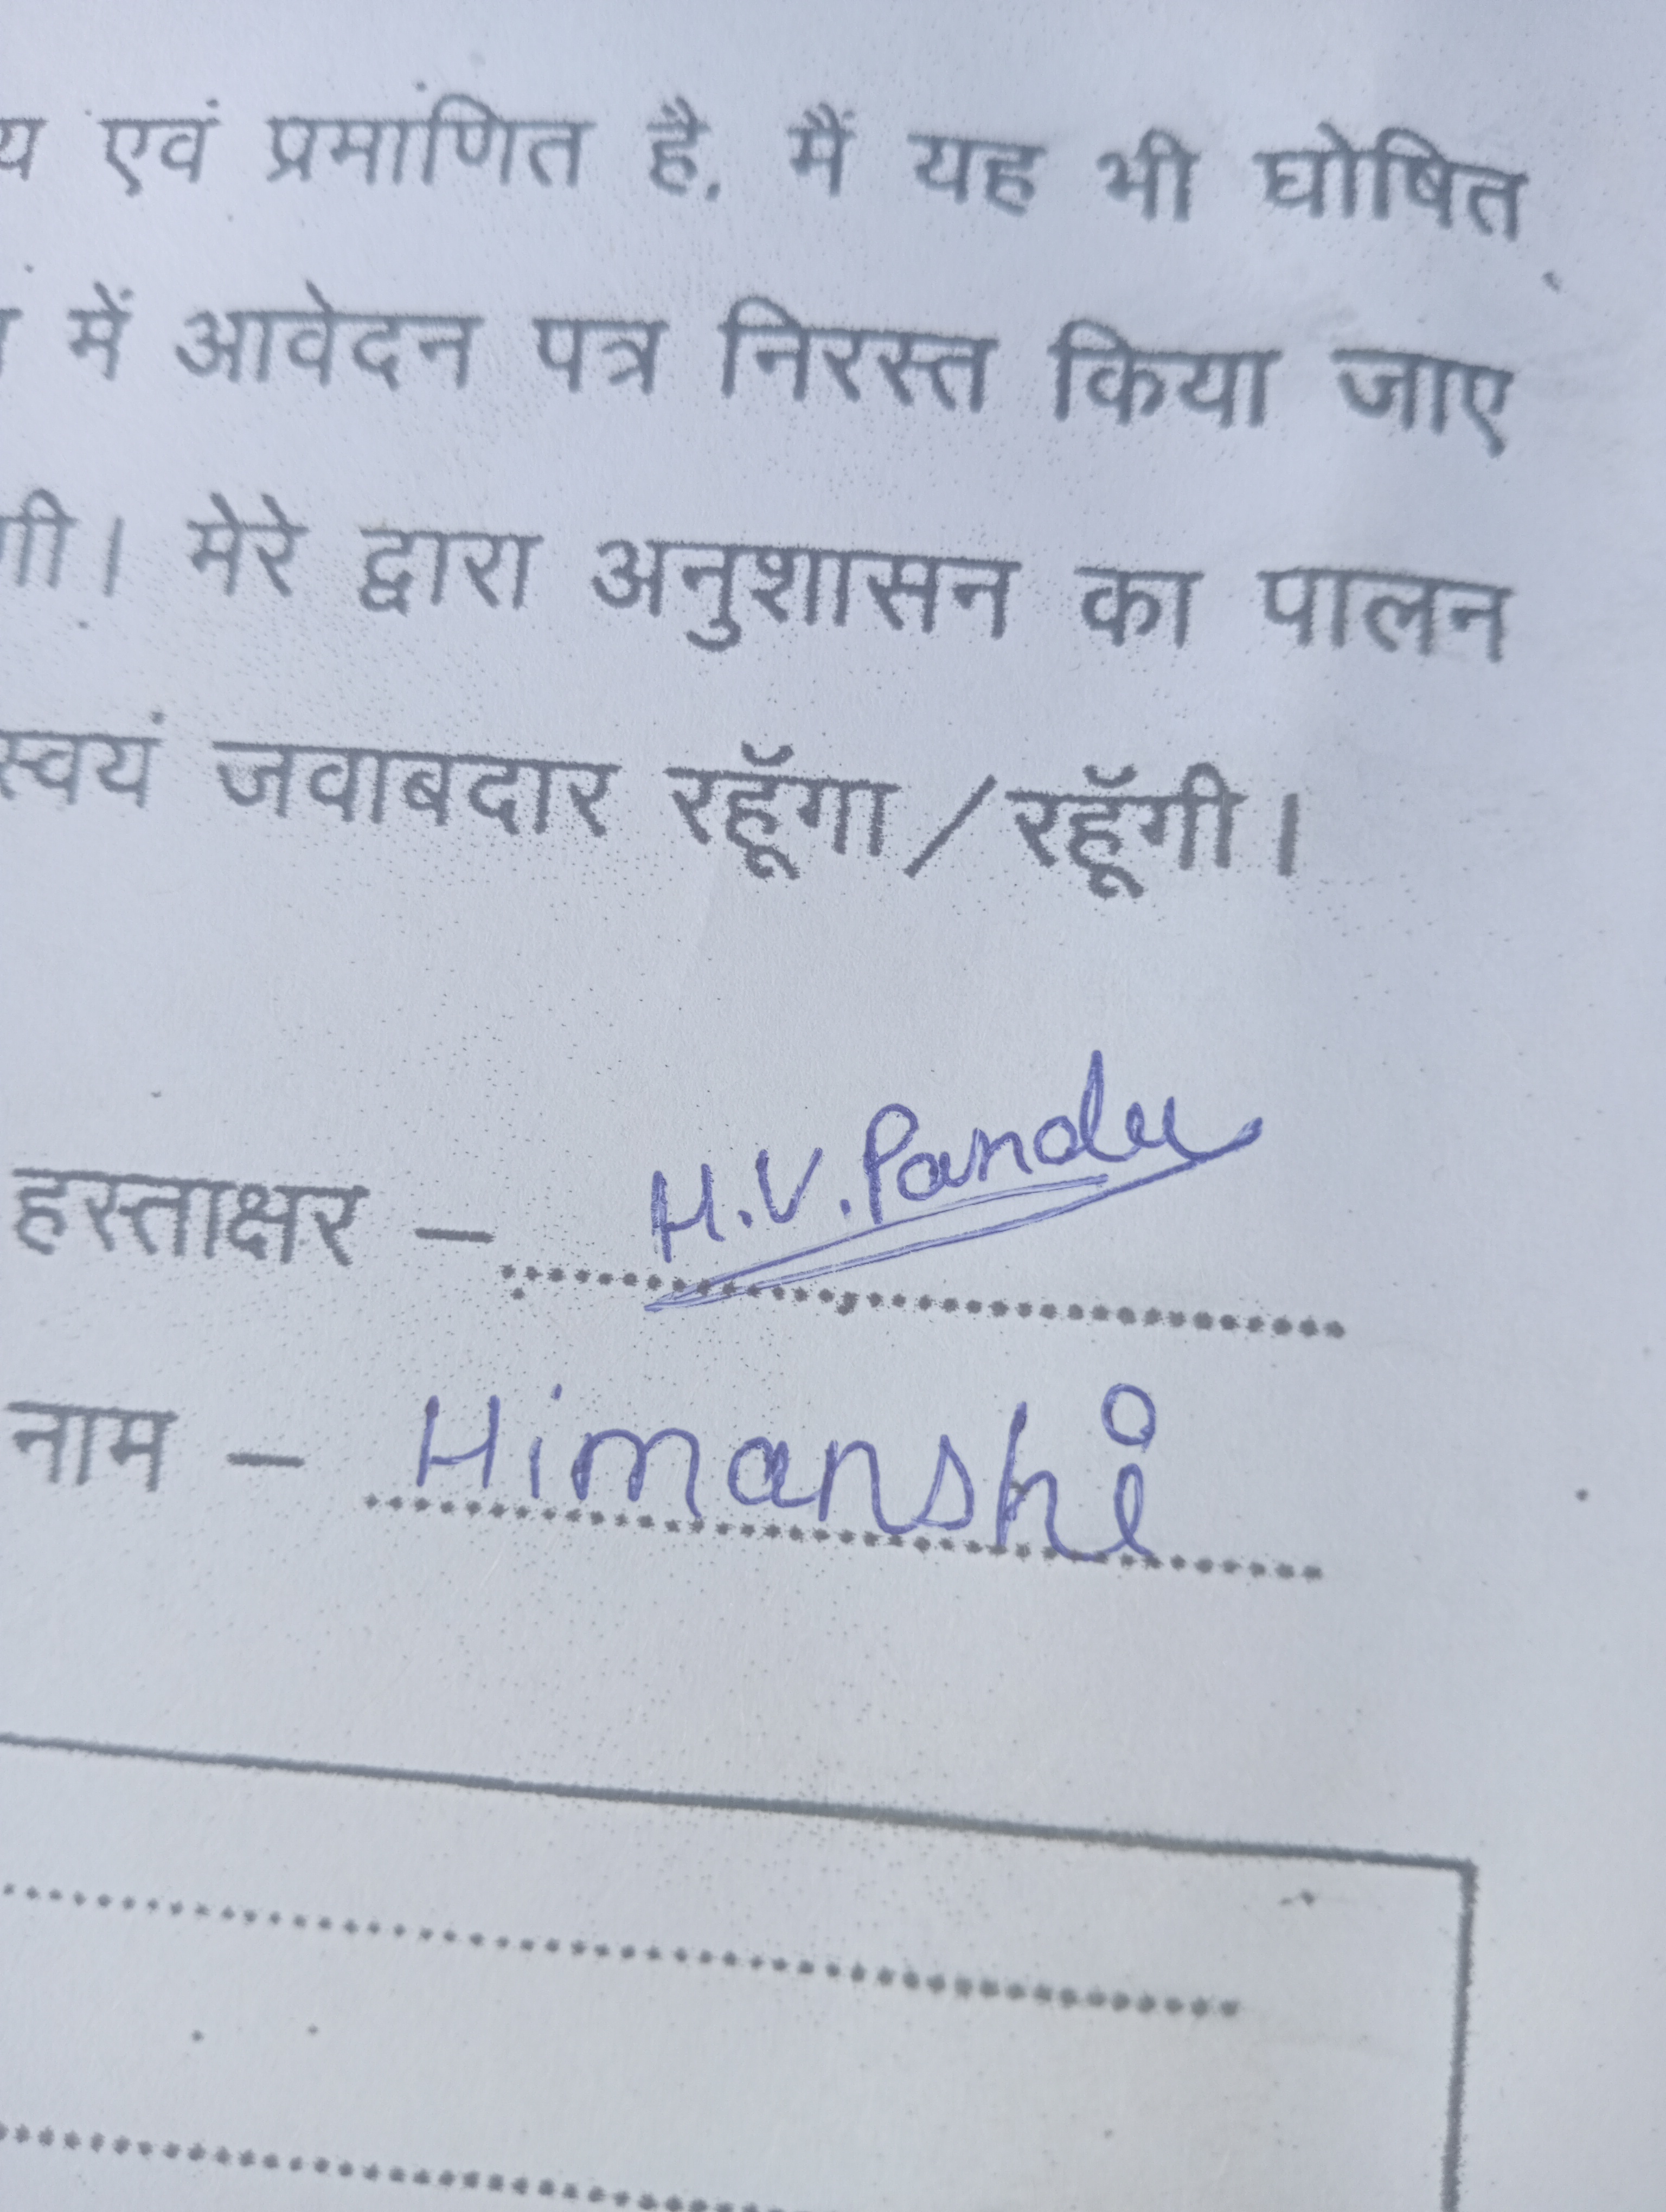 य एवं प्रमाणित है. मैं यह भी घोषित
में आवेदन पत्र निरस्त किया जाए
गी। मेरे द्वारा अनुशासन का पालन
स्वयं जवाबदार रहूँगा/रहूँगी।
हस्ताक्षर – H.V.
नाम – Himanshi